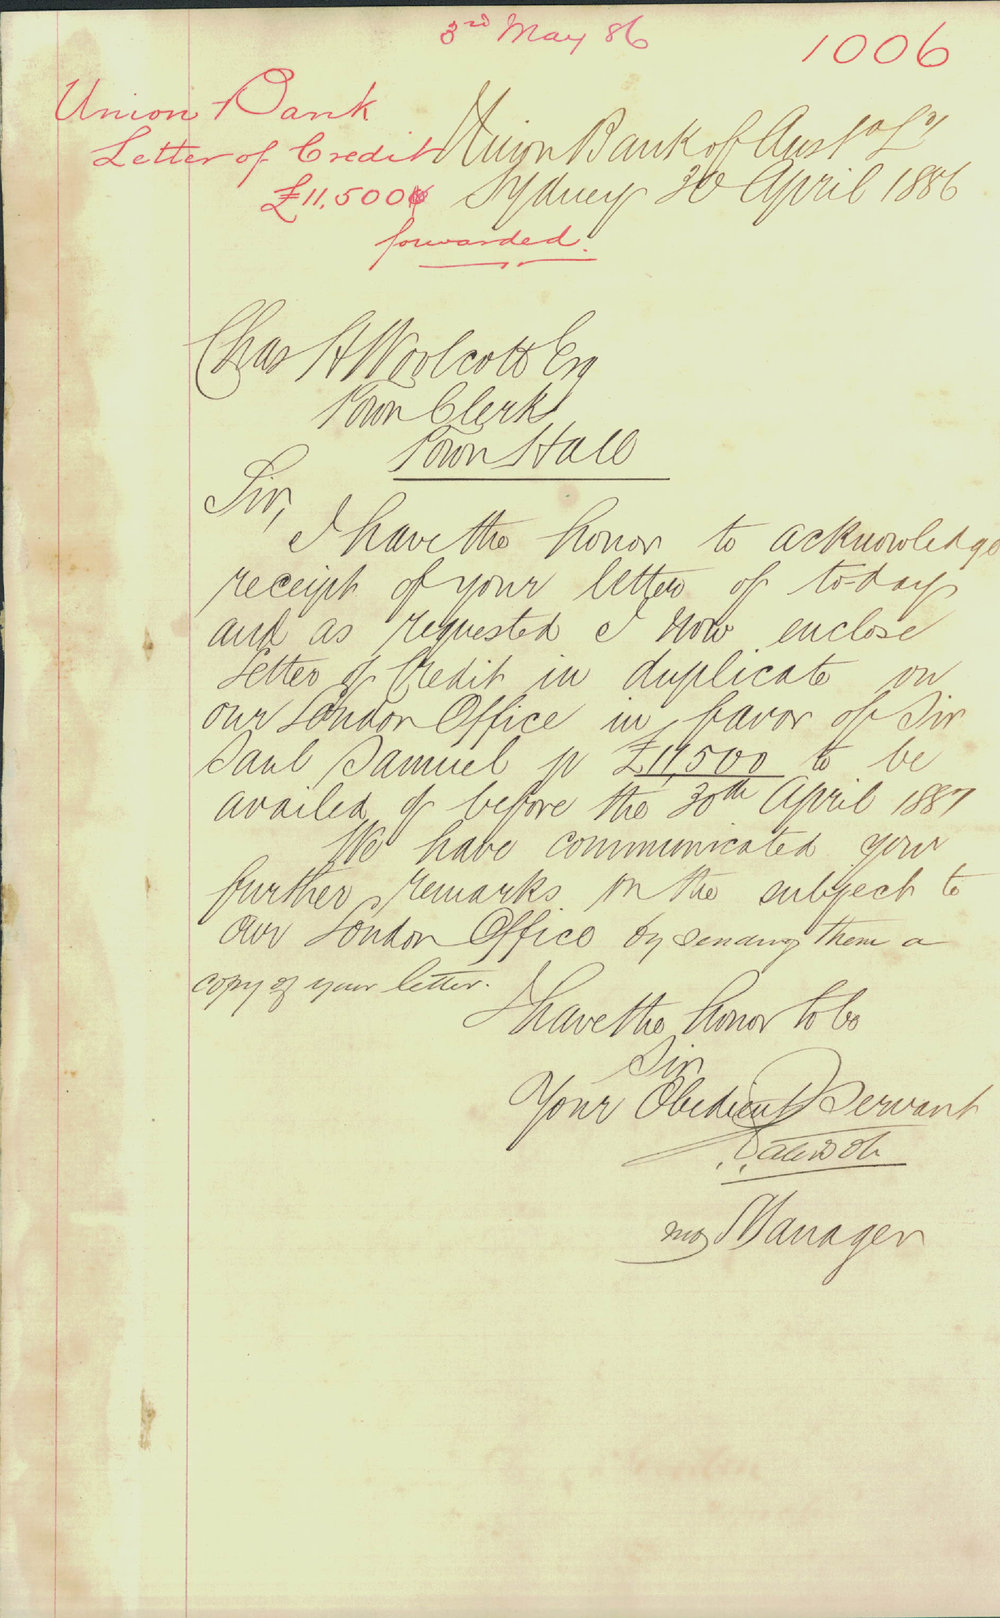 3rd May 86
1006
Union Bank
Letter of Credit
£11,500
forwarded.
Union Bank of Austa Ld
Sydney 30 April 1886
Chas H Woolcott Esq
Town Clerk
Town Hall
Sir,
I have the honor to acknowledge
receipt of your letter of to-day
and as requested I now enclose
Letter of Credit in duplicate on
our London Office in favor of Sir
Saul Samuel pr £11,500 to be
availed of before the 30th April 1887
We have communicated your
further remarks on the subject to
our London Office by sending them a
copy of your letter.
I have the honor to be
Sir
Your Obedient Servant
Manager